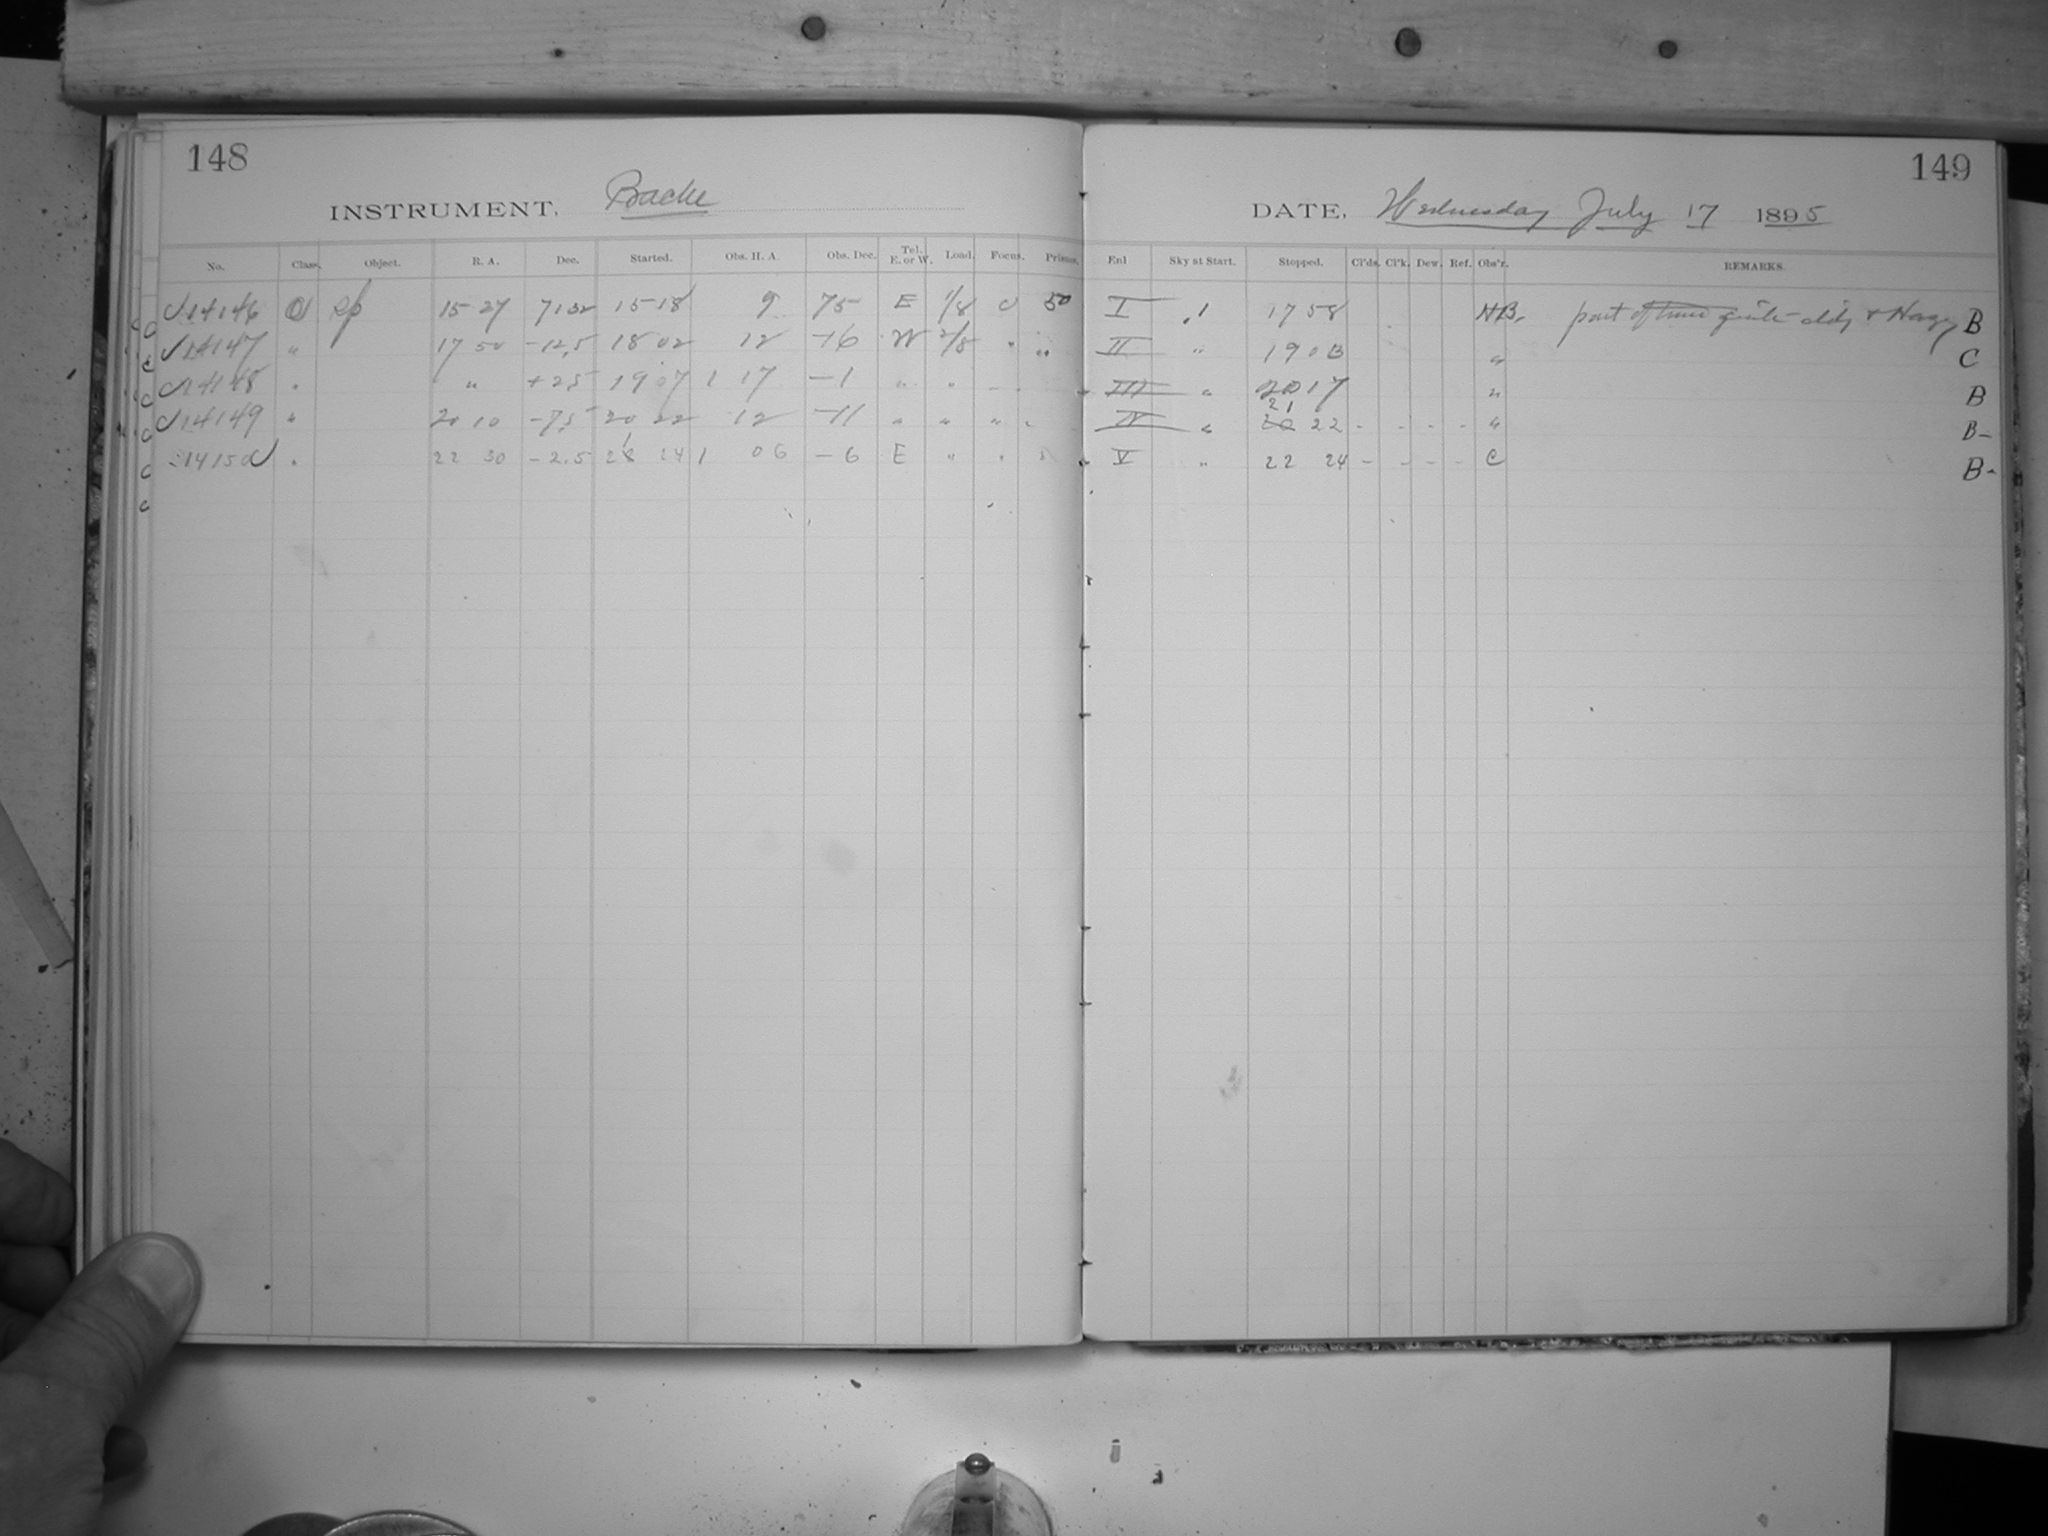 148
INSTRUMENT. Bache
No. Class. Object. R. A. Dec. Started. Obs. H. A. Obs. Dec. Tel. E. or W. Load. Focus. Prisms.
14146 Sp 15 27 15 18 9 75 E 1/8 50
14147 " 17 50 -12.5 18 02 12 -16 W 2/8 " "
14148 " " +25 19 07 1 17 -1 " "
14149 " 20 10 -7.5 20 22 12 -11 " " "
14150 " 22 30 -2.5 24 1 06 -6 E " "
149
DATE. Wednesday July 17 1895
Enl Sky at Start. Stopped. Cl'ds. Cl'k. Dew. Ref. Obs'r. REMARKS.
I .1 17 58 HB. part of time quite cldy + Hazy B
II " 19 03 " C
III " 20 17 " B
IV " 21 22 - - - - " B-
V " 22 24 - - - - C B-